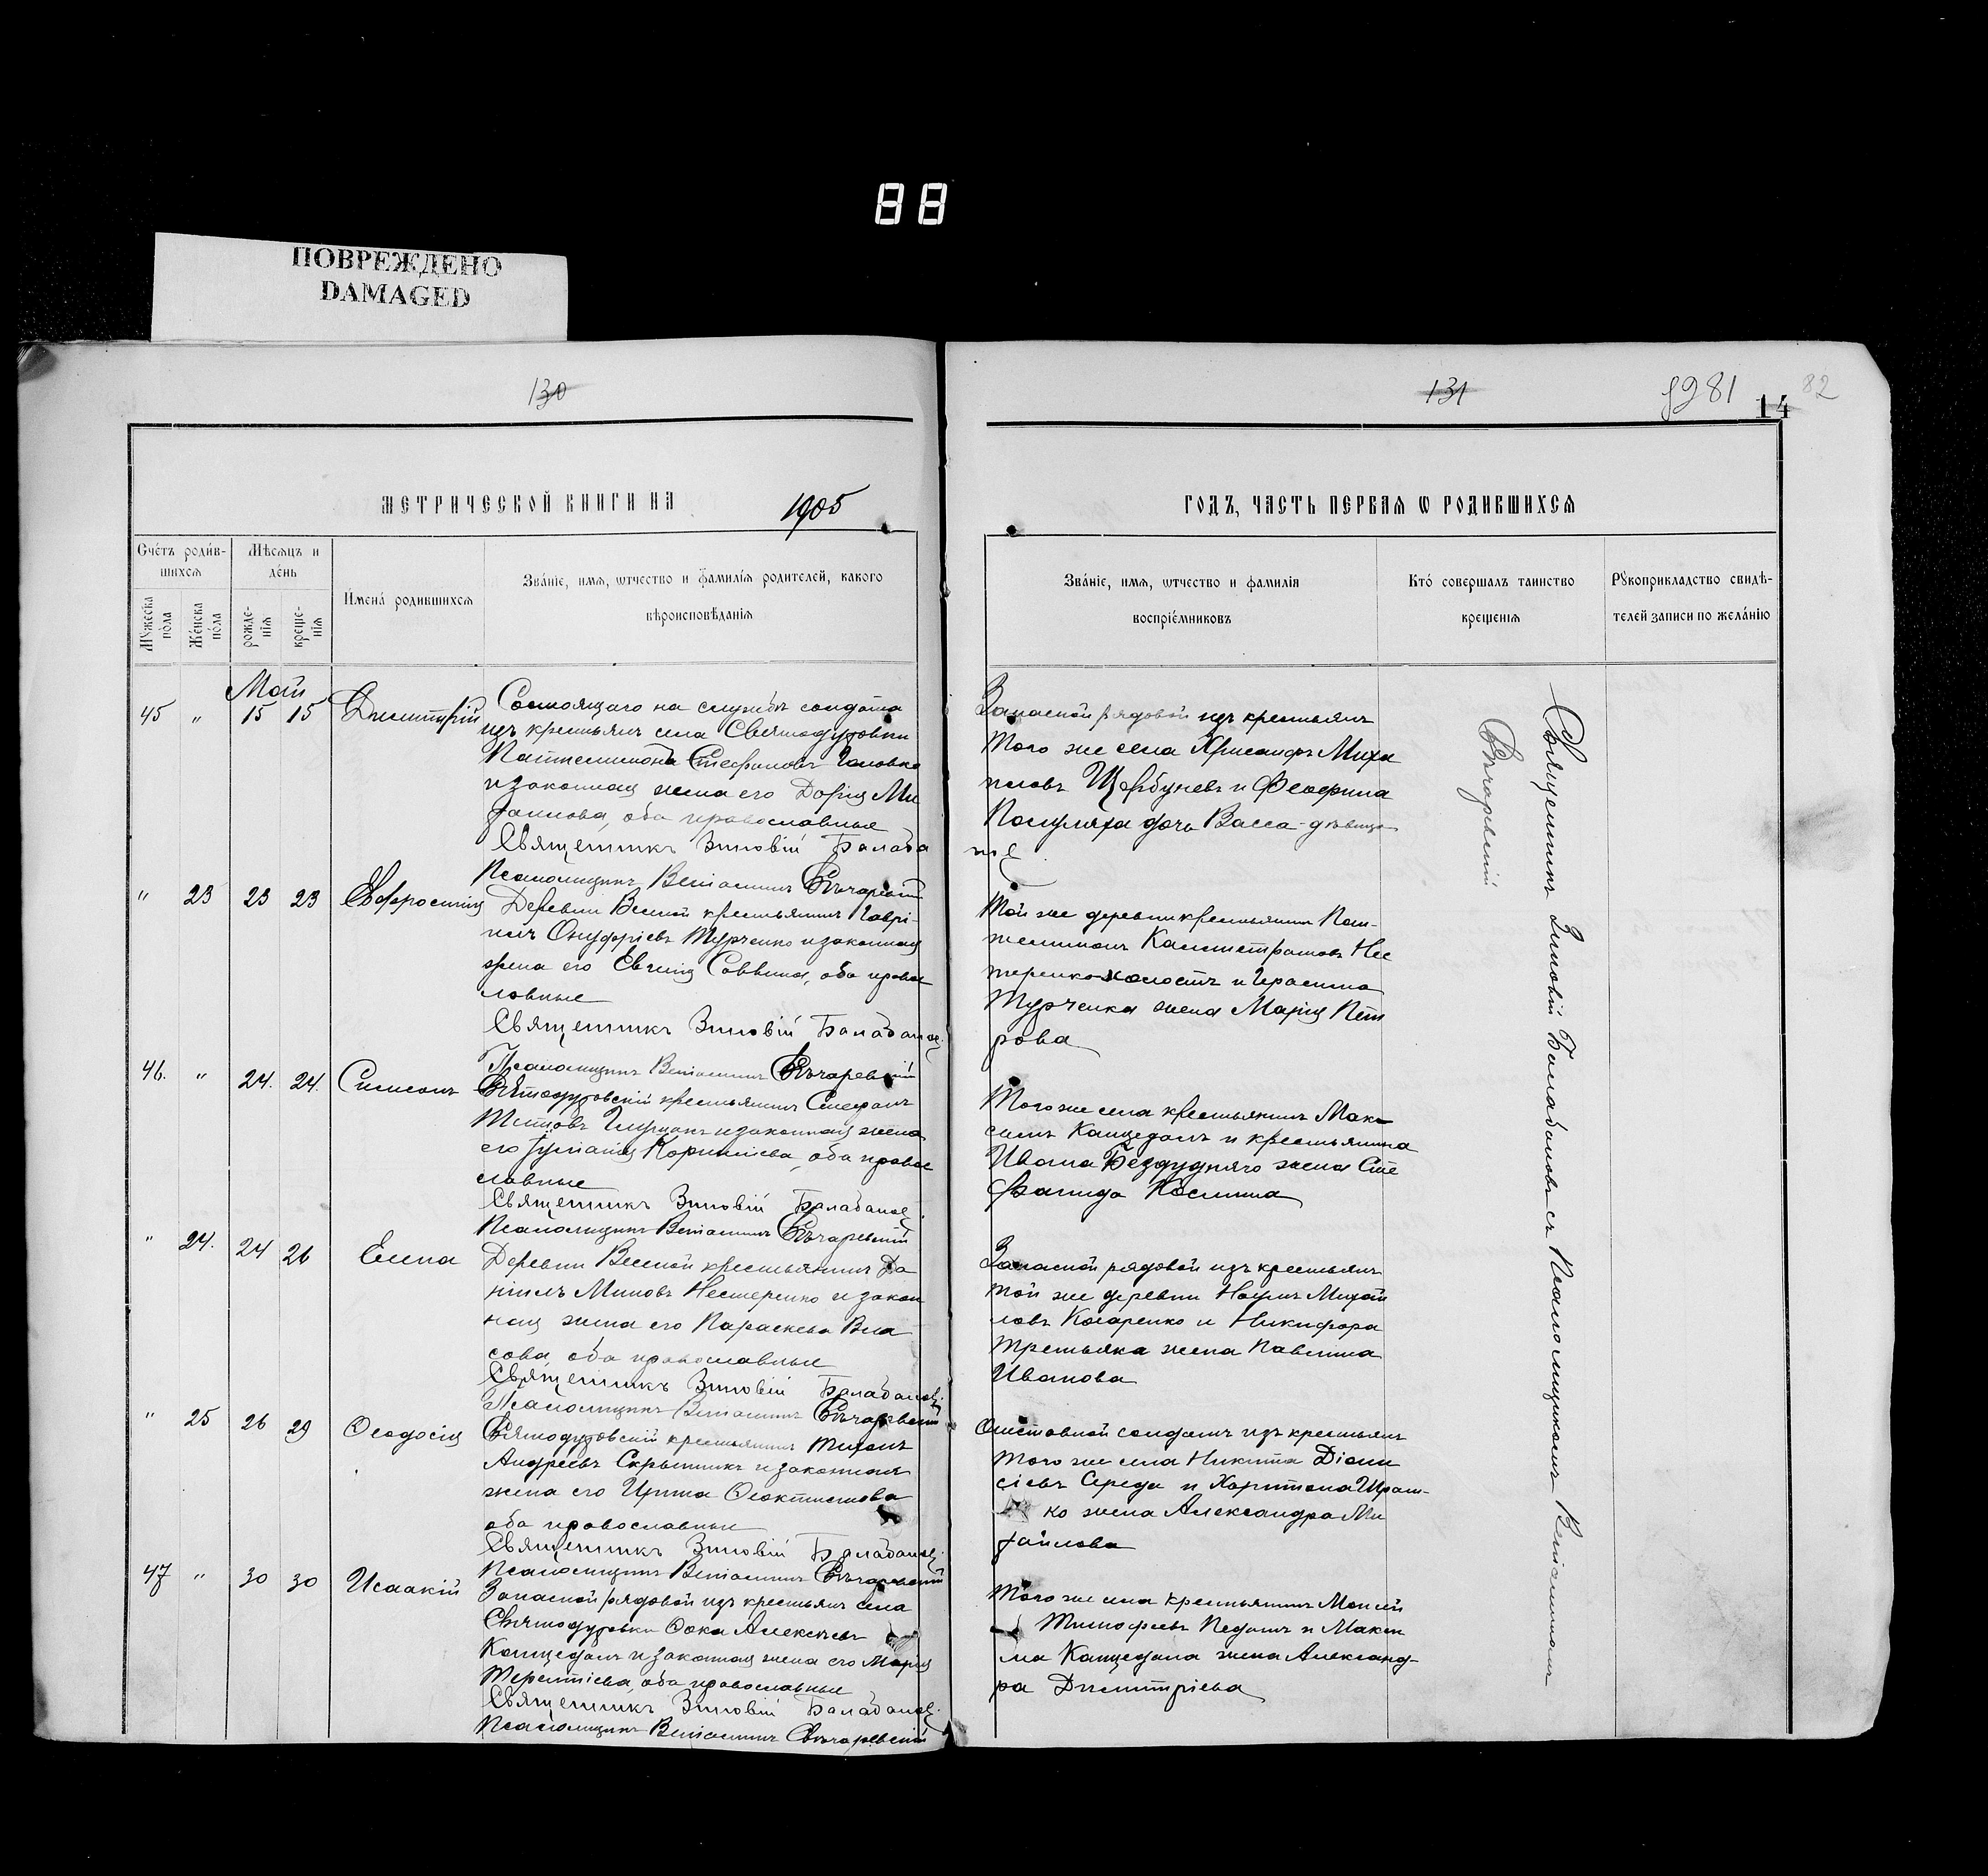 88
ПОВРЕЖДЕНО
DAMAGED
130
МЕТРИЧЕСКОЙ КНИГИ НА 1905
Счётъ роди́в-
шихсѧ
Мѣсѧцъ и
де́нь
Мꙋжеска по́ла
Же́нска по́ла
рожде-
нїѧ
креще-
нїѧ
Имена́ родившихсѧ
Зва́нїе, имѧ, ѿтчество и фамилїѧ родителей, какого
вѣроисповѣданїѧ
Май
45 " 15 15 Димитрій
Состоящаго на службѣ солдата
изъ крестьянъ села Святодуховки
Пантелимона Стефановъ Головко
и законная жена его Дарія Ми
хаилова, оба православные
Священникъ Зиновій Балаба
Псаломщикъ Веніаминъ Свѣчаревскій
" 23 23 23 Евфросинія
Деревни Веселой крестьянинъ Гаврі-
илъ Онуфріевъ Турченко и законная
жена его Евгенія Саввина, оба правос
лавные
Священникъ Зиновій Балабановъ
Псаломщикъ Веніаминъ Свѣчаревскій
46. " 24. 24. Симеонъ
Святодуховскій крестьянинъ Стефанъ
Титовъ и законная жена
его Іуліанія Корниліева, оба правос
лавные
Священникъ Зиновій Балабановъ
Псаломщикъ Веніаминъ Свѣчаревскій
" 24. 24 26 Елена
Деревни Веселой крестьянинъ Да
ніилъ Миновъ Нестеренко и закон
ная жена его Параскева Вла
сова, оба православные
Священникъ Зиновій Балабановъ
Псаломщикъ Веніаминъ Свѣчаревскій
" 25 26 29 Ѳеодосія
Святодуховскій крестьянинъ Тихонъ
Андреевъ Скрынникъ и законная
жена его Ирина Ѳеоктистова
оба православные
Священникъ Зиновій Балабановъ
Псаломщикъ Веніаминъ Свѣчаревскій
47 " 30 30 Исаакій
Запасной рядовой изъ крестьянъ села
Святодуховки Ѳока Алексѣевъ
Канцедалъ и законная жена его Марія
Терентіева, оба православные
Священникъ Зиновій Балабановъ
Псаломщикъ Веніаминъ Свѣчаревскій
131
81
14
82
ГОДЪ, ЧАСТЬ ПЕРВАѦ Ѡ РОДИВШИХСѦ
Зва́нїе, имѧ, ѿтчество и фамилїѧ
воспрїе́мниковъ
Кто́ совершалъ таинство
крещенїѧ
Рꙋкоприкладство свидѣ-
телей записи по жела́нїю
Запасной рядовой изъ крестьянъ
того же села Хрисанфъ Миха
иловъ Щербуневъ и
дочь Васса - дѣвица
Той же деревни крестьянинъ Пан-
телимонъ Калистратовъ Нес
теренко-холостъ и Герасима
Турченка жена Марія Пет
рова
Того же села крестьянинъ Мак
симъ Канцедалъ и крестьянина
Ивана Бездудняго жена Сте
фанида Косьмина
Запасной рядовой изъ крестьянъ
той же деревни Наумъ Михай
ловъ Косаренко и Никифора
Третьяка жена Павлина
Иванова
Отставной солдатъ изъ крестьянъ
того же села Никита Діони
сіевъ Середа и Харитона Ираш-
ко жена Александра Ми
хайлова
Того же села крестьянинъ Моисей
Тимофеевъ Педанъ и Макси
ма Канцедала жена Александ-
ра Димитріева
Священникъ Зиновій Балабановъ съ Псаломщикомъ Веніаминомъ
Свѣчаревскій